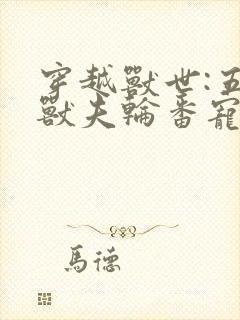 穿越獸世:五
獸夫輪番寵
馬德